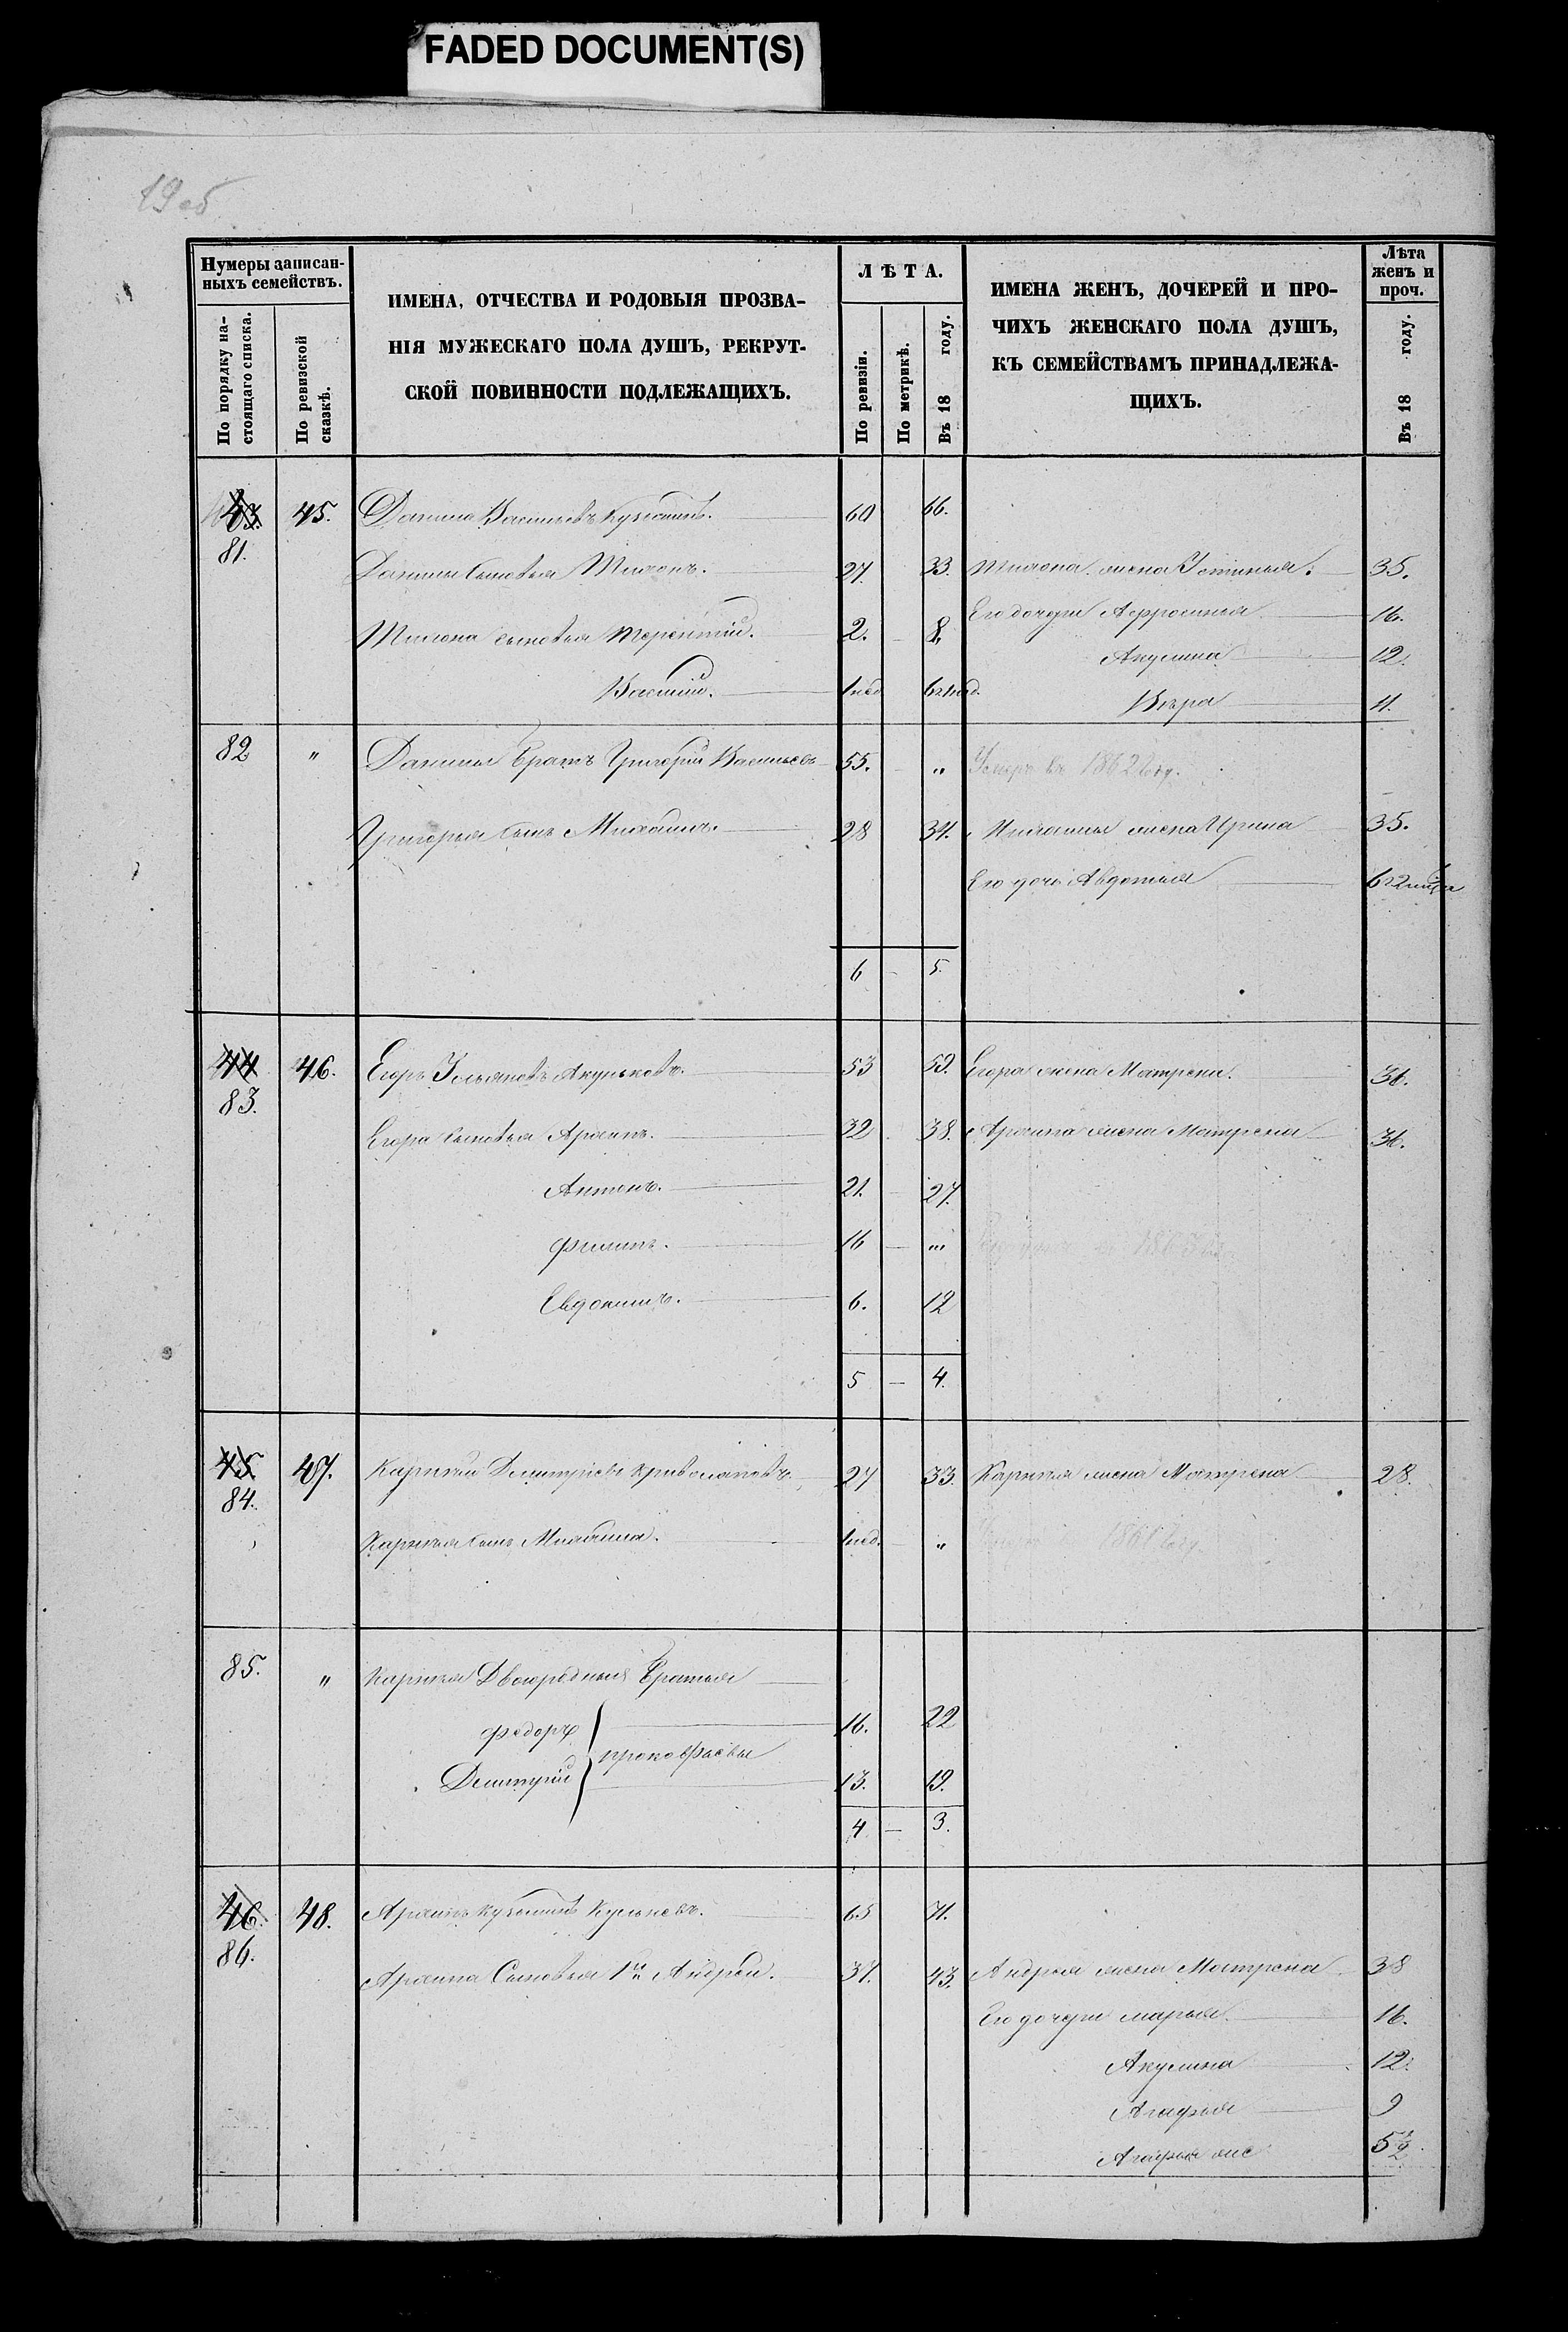 FADED DOCUMENT(S)
19 об
Нумеры записан-
ныхъ семействъ.
По порядку на-
стоящаго списка.
По ревизской
сказкѣ.
ИМЕНА, ОТЧЕСТВА И РОДОВЫЯ ПРОЗВА-
НІЯ МУЖЕСКАГО ПОЛА ДУШЪ, РЕКРУТ-
СКОЙ ПОВИННОСТИ ПОДЛЕЖАЩИХЪ.
ЛѢТА.
По ревизіи.
По метрикѣ.
Въ 18 году.
ИМЕНА ЖЕНЪ, ДОЧЕРЕЙ И ПРО-
ЧИХЪ ЖЕНСКАГО ПОЛА ДУШЪ,
КЪ СЕМЕЙСТВАМЪ ПРИНАДЛЕЖА-
ЩИХЪ.
Лѣта
женъ и
проч.
Въ 18 году.
43. 45. Данила Васильевъ Кузминъ. 60 66.
81.
Данилы сыновья Тихонъ. 27. 33. Тихона жена Устинья. 35.
Тихона сыновья Терентій. 2. 8. Его дочери Афросинья 16.
Акулина 12.
Василій. 1 нед. Вѣра 4.
82 " Данилы братъ Григорій Васильевъ 55. " Умеръ въ 1862 году.
Григорья сынъ Михаилъ. 28 34. Михаилы жена Ирина 35.
Его дочь Авдотья
6 - 5.
44 46. Егоръ Ульяновъ Акуньковъ. 53 59. Егора жена Матрена. 36.
83.
Егора сыновья Архипъ. 32 38. Архипа жена Матрена 36.
Антонъ. 21. 27.
Филипъ. 16 - " 1863
Евдокимъ. 6. 12
5 - 4.
45 47. Карпѣй Дмитріевъ Криволаповъ. 27 33. Карпѣя жена Матрена 28.
84.
Карпѣя сынъ Михайла. 1 нед. " 1861 году.
85. " Карпѣя Двоюродныя братья
Федоръ 16. 22
Прокофьевы
Дмитрій 13. 19.
4 - 3.
46. 48. Архипъ Кузминъ Кульневъ. 65 71.
86.
Архипа Сыновья 1й Андрей. 37. 43. Андрея жена Матрена 38
Его дочери Марья. 16.
Акулина 12.
Агафья 9
Агафья же 5½